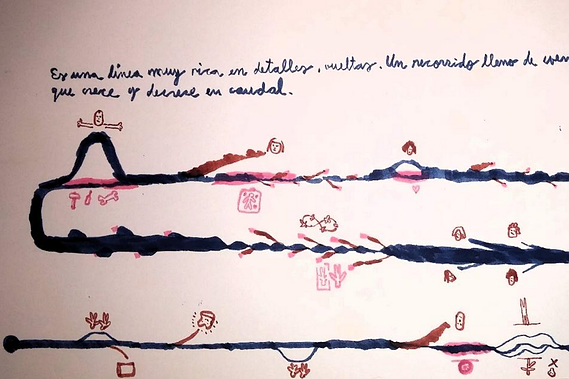 Es una línea muy rica en detalles, vueltas. Un recorrido lleno de
que crece y decrece en caudal.